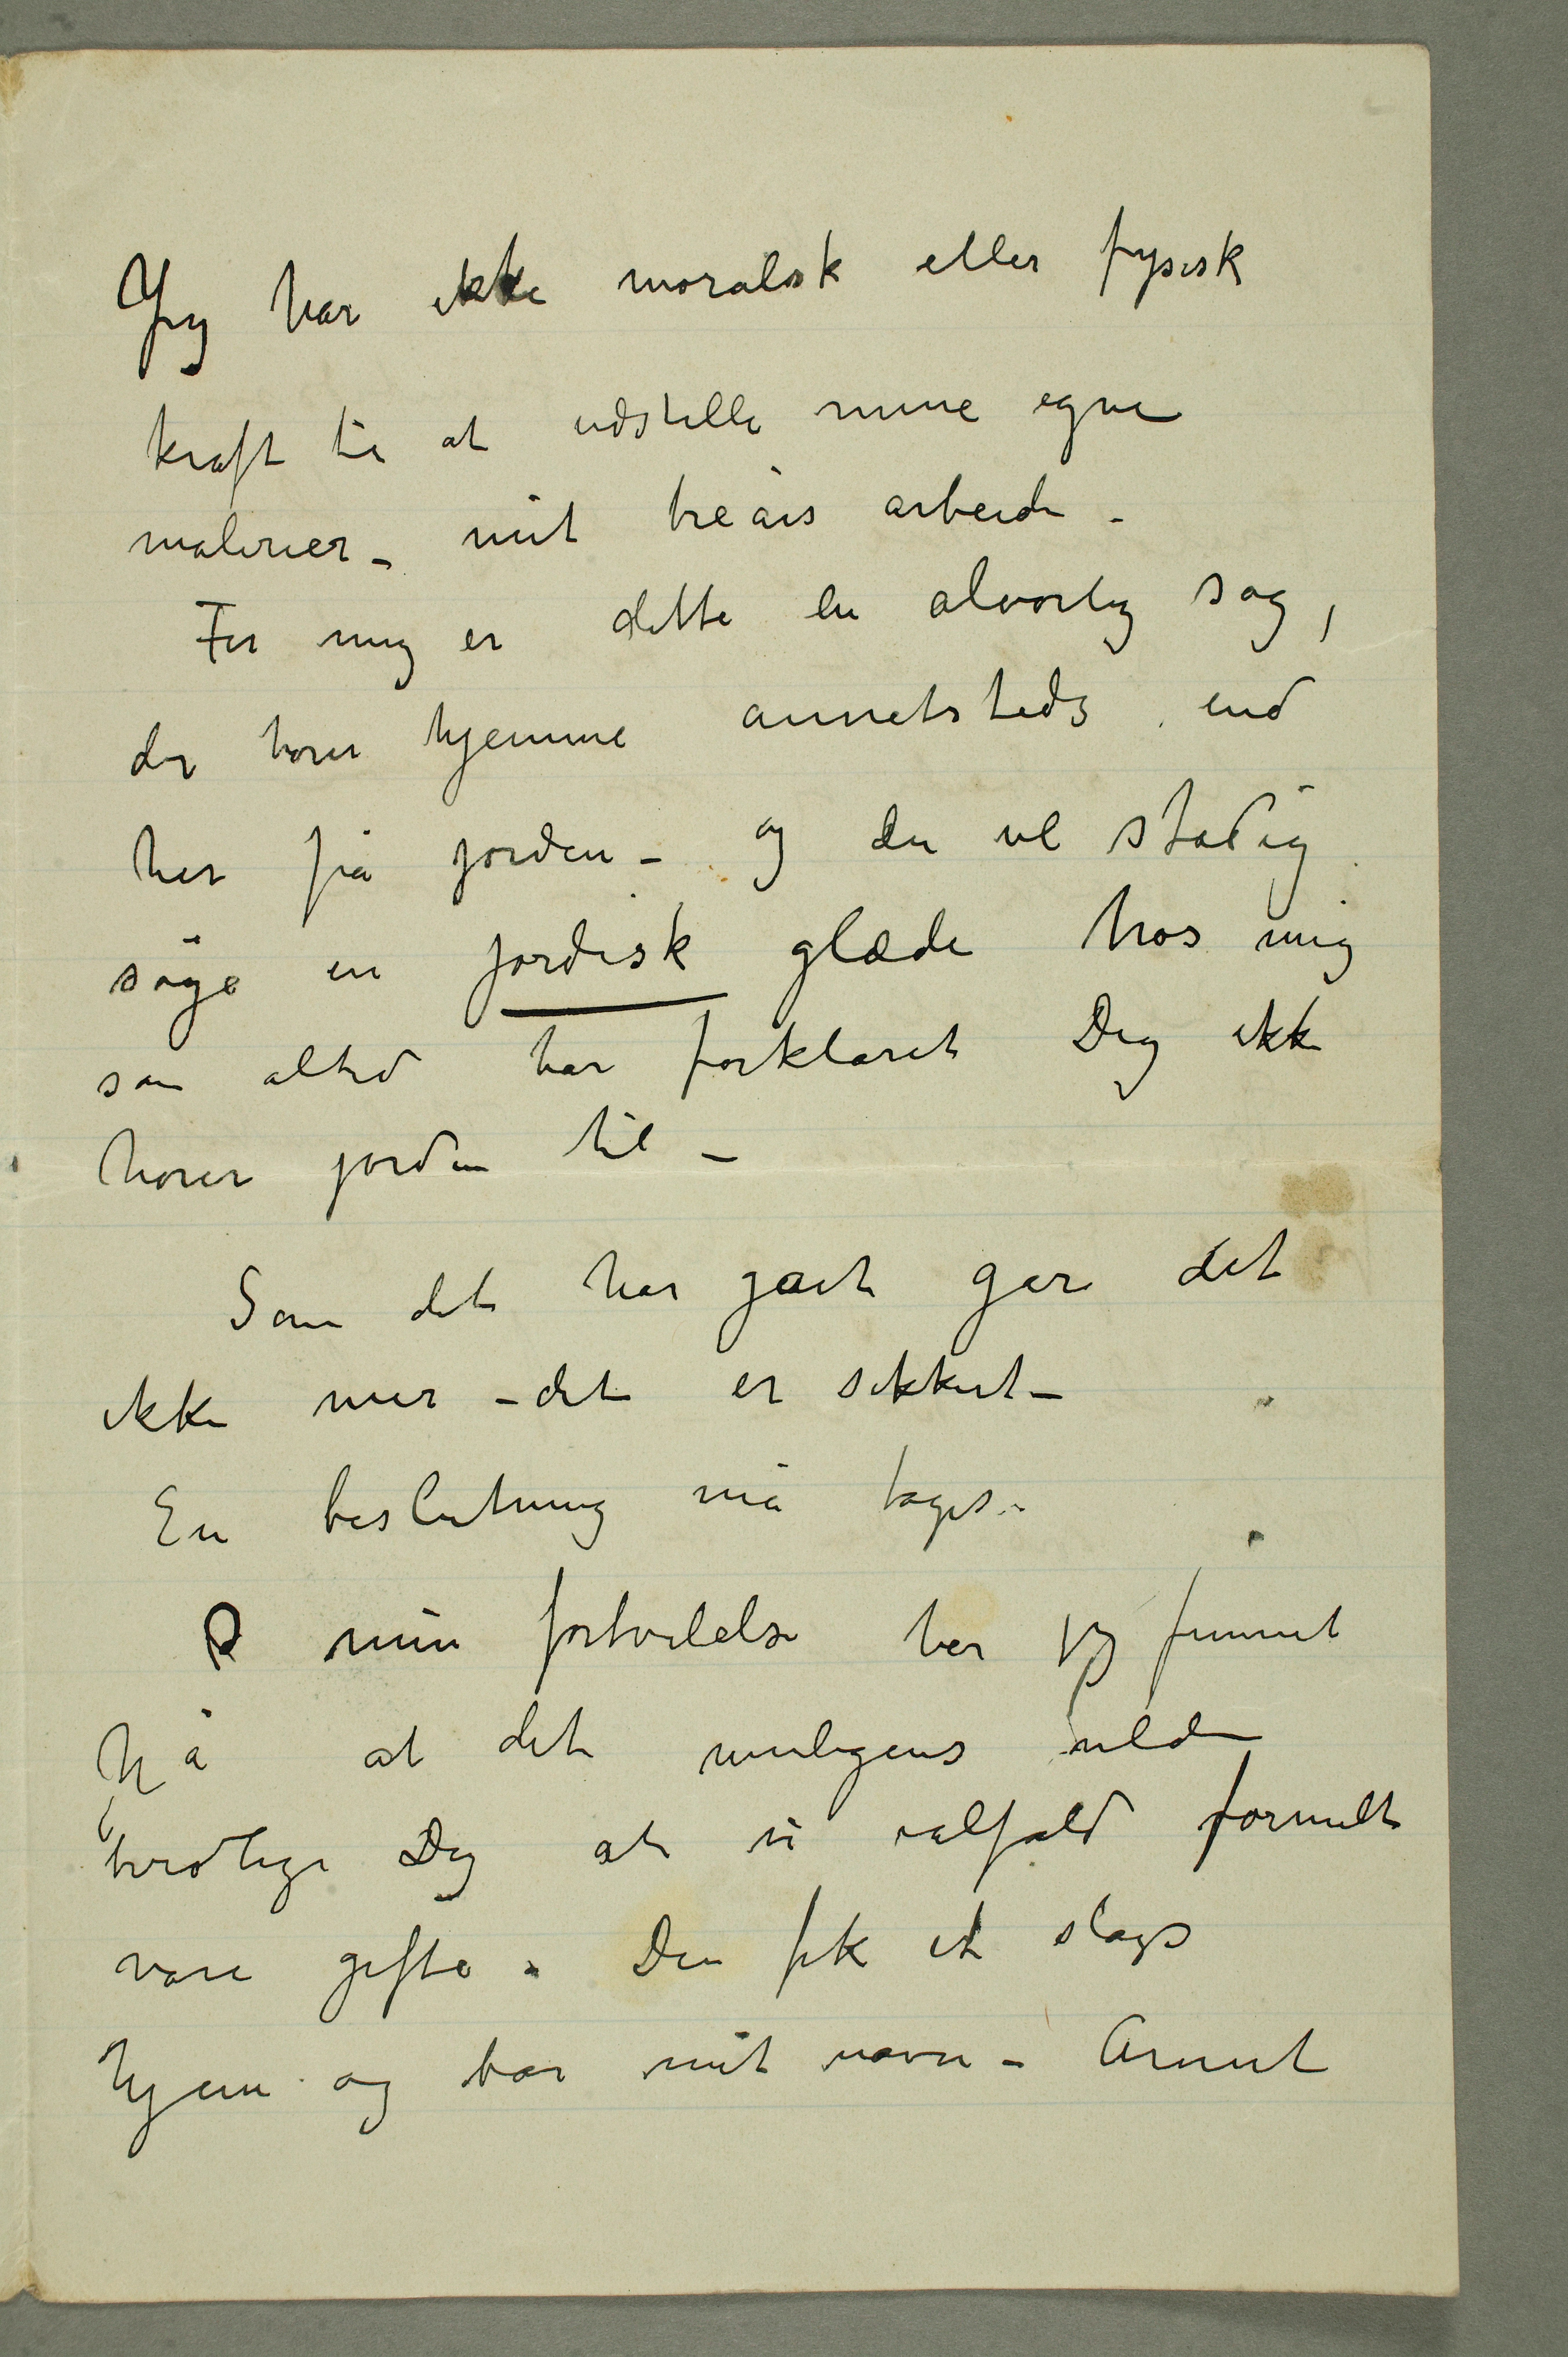 Jeg har ikke moralsk eller fysisk
kraft til at udstille mine egne
malerier – mit treårs arbeide –
For mig er dette en alvorlig sag,
der hører hjemme annetsteds end
her på jorden – og du vil stadig
søge en jordisk glæde hos mig
som altid har forklaret Dig ikke
hører jorden til –
Som det har gået går det
ikke mer – det er sikkert –
En beslutning må tages –
I min fortvilelse har jeg funnet
på at det muligens vilde
berolige Dig at vi ialfald formelt
vare gifte. Du fik et slags
hjem og bar mit navn – Annet